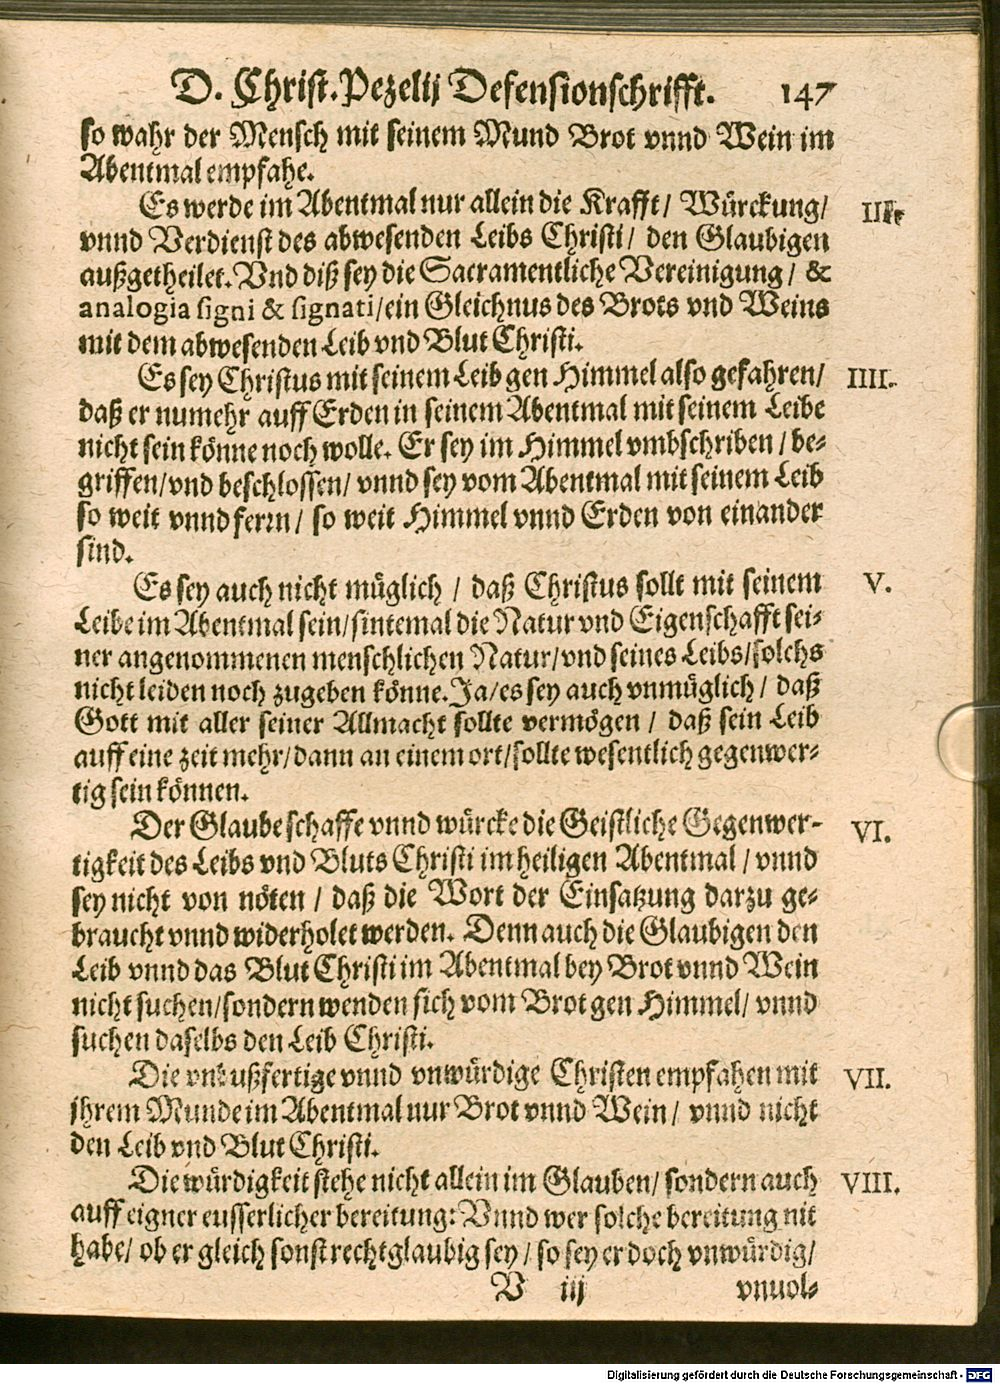 D. Christ. Pezelij Defensionschrifft. 147
so wahr der Mensch mit seinem Mund Brot vnnd Wein im
Abentmal empfahe.
Es werde im Abentmal nur allein die Krafft/ Würckung/ III.
vnnd Verdienst des abwesenden Leibs Christi/ den Glaubigen
außgetheilet. Vnd diß sey die Sacramentliche Vereinigung/ &
analogia signi & signati/ein Gleichnus des Brots vnd Weins
mit dem abwesenden Leib vnd Blut Christi.
Es sey Christus mit seinem Leib gen Himmel also gefahren/ IIII.
daß er numehr auff Erden in seinem Abentmal mit seinem Leibe
nicht sein könne noch wolle. Er sey im Himmel vmbschriben/ be-
griffen/vnd beschlossen/ vnnd sey vom Abentmal mit seinem Leib
so weit vnnd ferrn/ so weit Himmel vnnd Erden von einander
sind.
Es sey auch nicht müglich/ daß Christus sollt mit seinem V.
Leibe im Abentmal sein/sintemal die Natur vnd Eigenschafft sei-
ner angenommenen menschlichen Natur/vnd seines Leibs/solchs
nicht leiden noch zugeben könne. Ja/es sey auch vnmüglich/ daß
Gott mit aller seiner Allmacht sollte vermögen/ daß sein Leib
auff eine zeit mehr/dann an einem ort/sollte wesentlich gegenwer-
tig sein können.
Der Glaube schaffe vnnd würcke die Geistliche Gegenwer- VI.
tigkeit des Leibs vnd Bluts Christi im heiligen Abentmal/ vnnd
sey nicht von nöten/ daß die Wort der Einsatzung darzu ge-
braucht vnnd widerholet werden. Denn auch die Glaubigen den
Leib vnnd das Blut Christi im Abentmal bey Brot vnnd Wein
nicht suchen/sondern wenden sich vom Brot gen Himmel/ vnnd
suchen daselbs den Leib Christi.
Die vnbußfertige vnnd vnwürdige Christen empfahen mit VII.
jhrem Munde im Abentmal nur Brot vnnd Wein/ vnnd nicht
den Leib vnd Blut Christi.
Die würdigkeit stehe nicht allein im Glauben/ sondern auch VIII.
auff eigner eusserlicher bereitung: Vnnd wer solche bereitung nit
habe/ ob er gleich sonst rechtglaubig sey/ so sey er doch vnwürdig/
V iij vnuol-
Digitalisierung gefördert durch die Deutsche Forschungsgemeinschaft - DFG